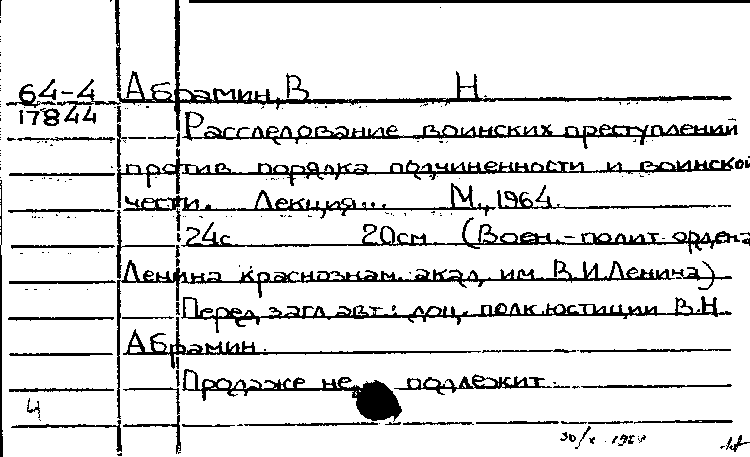 64-4 Абрамин, В Н.
17844
Расследование воинских преступлений
против порядка подчиненности и воинской
чести. Лекция... М., 1964.
24с 20см (Воен.-полит. ордена
Ленина краснознам. акад. им. В.И.Ленина)
Перед загл. авт.: доц. полк. юстиции В.Н.
Абрамин.
Продаже не подлежит.
4